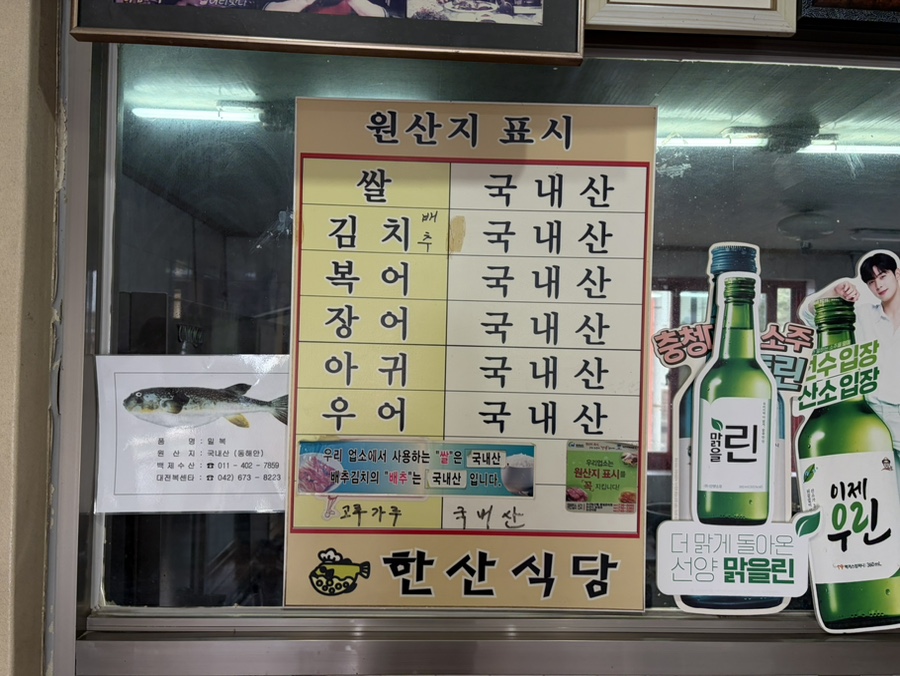 원산지 표시
쌀 국내산
김치 배추 국내산
복어 국내산
장어 국내산
아귀 국내산
우어 국내산
우리 업소에서 사용하는 "쌀"은 국내산
배추김치의 "배추"는 국내산 입니다.
우리업소는
원산지 표시를
꼭 지킵니다!
고추가루 국내산
한산식당
품 명 : 밀복
원 산 지 : 국내산 (동해안)
백제수산 : ☎ 011 - 402 - 7859
대전복센타 : ☎ 042) 673 - 8223
충청
소주
린
맑을린
더 맑게 돌아온
선양 맑을린
선수입장
산소입장
이제
우린